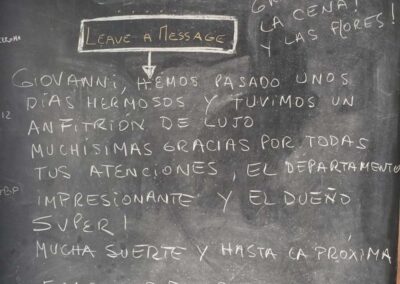 LA CENA!
Y LAS FLORES!
LEAVE A MESSAGE
GIOVANNI, HEMOS PASADO UNOS
DÍAS HERMOSOS Y TUVIMOS UN
12
ANFITRIÓN DE LUJO
MUCHÍSIMAS GRACIAS POR TODAS
TUS ATENCIONES, EL DEPARTAMENTO
IMPRESIONANTE Y EL DUEÑO
SUPER!
MUCHA SUERTE Y HASTA LA PRÓXIMA